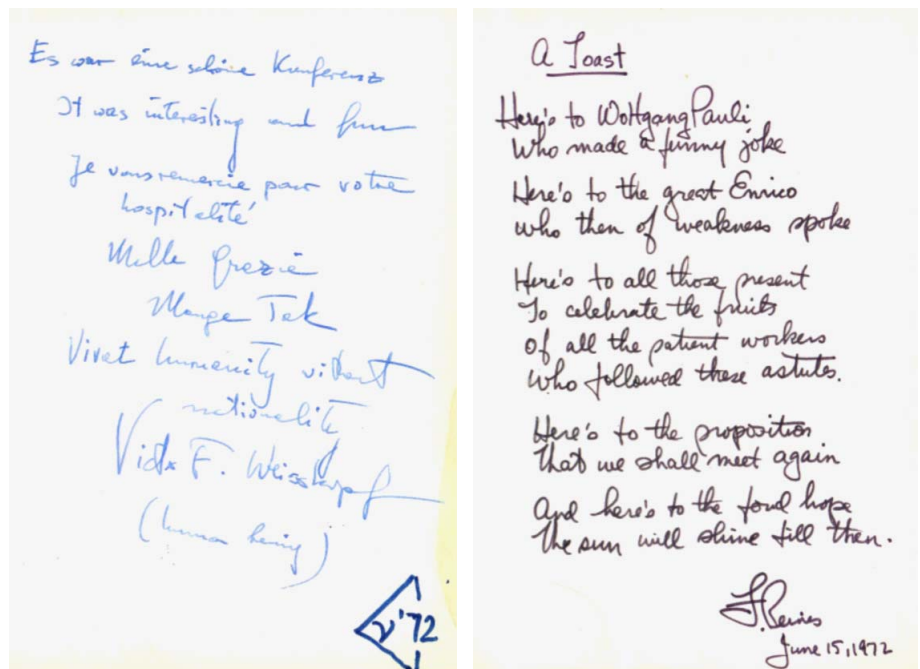 Es war eine schöne Konferenz
It was interesting and fun
Je vous remercie pour votre
hospitalité
Mille grazie
Mange Tak
Vivat humanity without
nationality
Victor F. Weisskopf
(human being)
ν'72
A Toast
Here's to Wolfgang Pauli
Who made a funny joke
Here's to the great Enrico
who then of weakness spoke
Here's to all those present
To celebrate the fruits
Of all the patient workers
Who followed these astutes.
Here's to the proposition
That we shall meet again
And here's to the fond hope
The sun will shine till then.
F. Reines
June 15, 1972